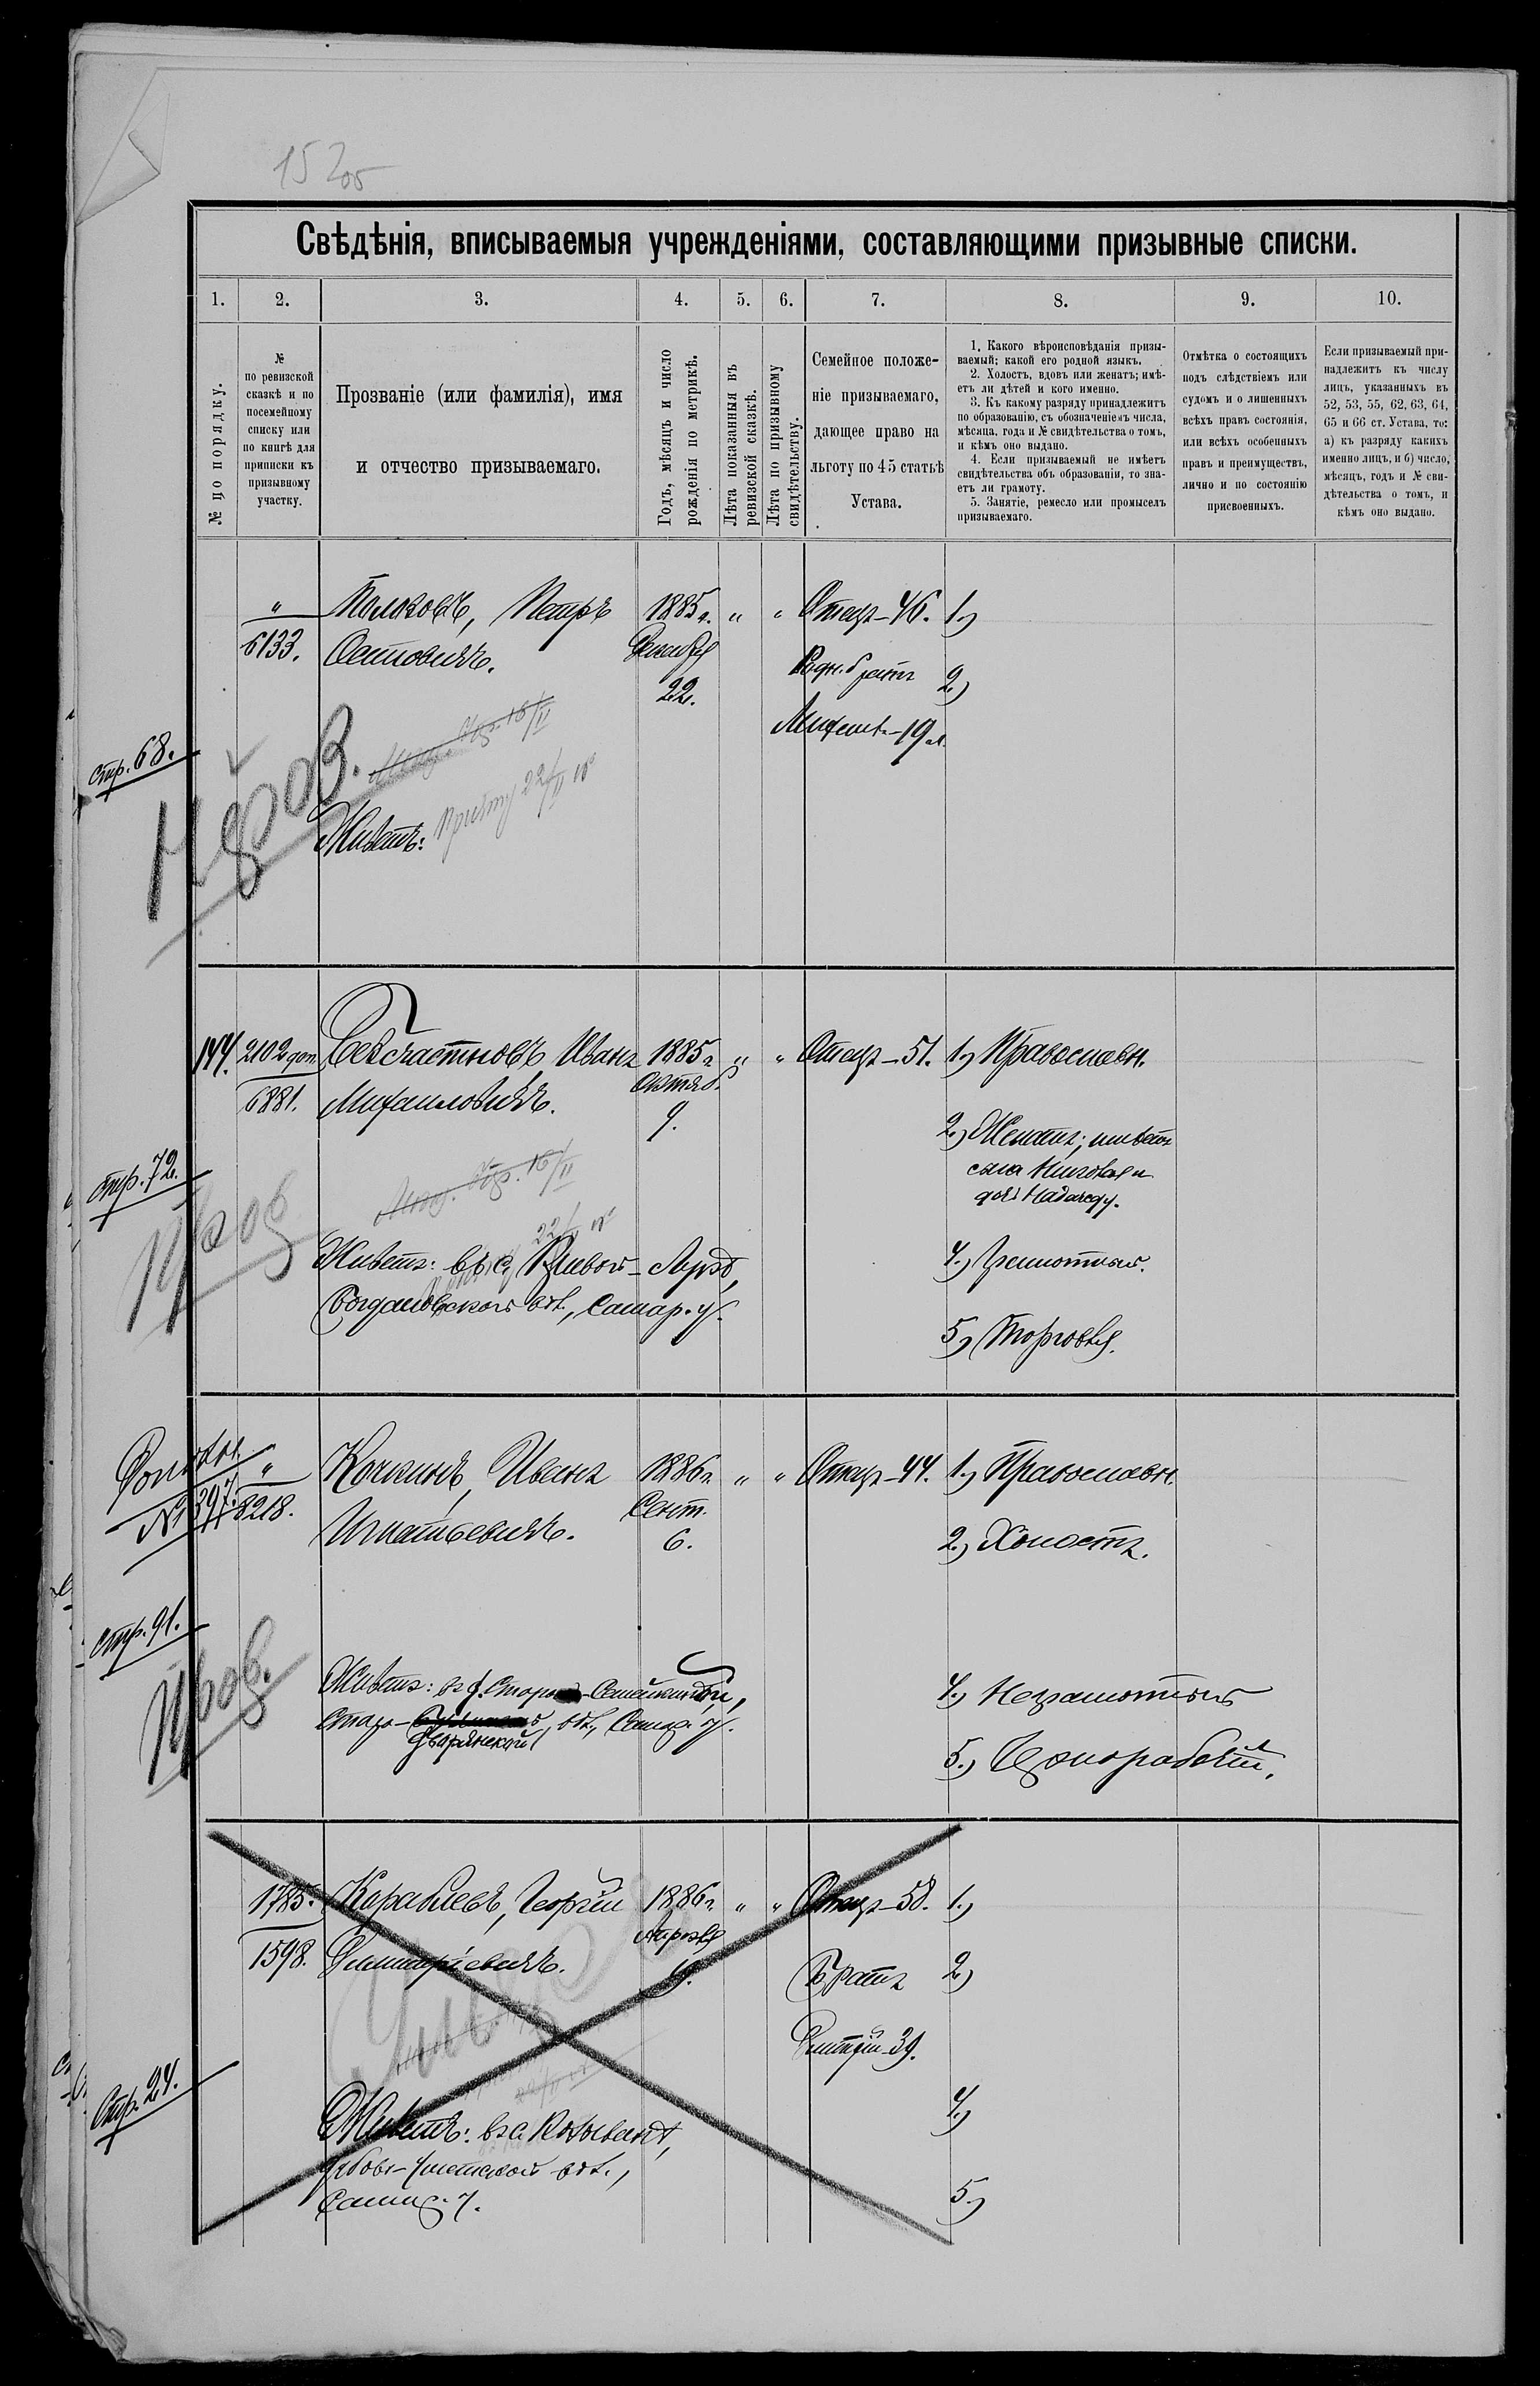 15 205
Свѣдѣнія, вписываемыя учрежденіями, составляющими призывные списки.
1. 2. 3. 4. 5. 6. 7. 8. 9. 10.
№ по порядку.
№
по ревизской
сказкѣ и по
посемейному
списку или
по книгѣ для
приписки къ
призывному
участку.
Прозваніе (или фамилія), имя
и отчество призываемаго.
Годъ, мѣсяцъ и число
рожденія по метрикѣ.
Лѣта показанныя въ
ревизской сказкѣ.
Лѣта по призывному
свидѣтельству.
Семейное положе-
ніе призываемаго,
дающее право на
льготу по 45 статьѣ
Устава.
1. Какого вѣроисповѣданія призы-
ваемый; какой его родной языкъ.
2. Холостъ, вдовъ или женатъ; имѣ-
етъ ли дѣтей и кого именно.
3. Къ какому разряду принадлежитъ
по образованію, съ обозначеніемъ числа,
мѣсяца, года и № свидѣтельства о томъ,
и кѣмъ оно выдано.
4. Если призываемый не имѣетъ
свидѣтельства объ образованіи, то зна-
етъ ли грамоту.
5. Занятіе, ремесло или промыселъ
призываемаго.
Отмѣтка о состоящихъ
подъ слѣдствіемъ или
судомъ и о лишенныхъ
всѣхъ правъ состоянія,
или всѣхъ особенныхъ
правъ и преимуществъ,
лично и по состоянію
присвоенныхъ.
Если призываемый при-
надлежитъ къ числу
лицъ, указанныхъ въ
52, 53, 55, 62, 63, 64,
65 и 66 ст. Устава, то:
а) къ разряду какихъ
именно лицъ, и б) число,
мѣсяцъ, годъ и № сви-
дѣтельства о томъ, и
кѣмъ оно выдано.
" Полозовъ, Петръ 1885 г. " " Отецъ-46. 1,)
6133. Осиповичъ. Декабря
22.
Родн. братъ 2,)
Михаилъ-19 л.
стр. 68.
Живетъ:
144. 2102 доп. Безсчастновъ Иванъ 1885 г. " " Отецъ-51. 1,) Православн.
6881. Михаиловичъ. Октяб.
9.
2,) Женатъ; имѣетъ
сына
дочь Надежду.
стр. 72.
Живетъ: въ с. Кривой-Лукѣ, 4,) Грамотный.
Богдановской вол., Самар. у.
5,) Торговля.
Дополн.
№ 397. " Кочкинъ, Иванъ 1886 г. " " Отецъ-44. 1,) Православн.
8218. Игнатьевичъ. Сент.
6.
2,) Холостъ.
стр. 91.
Живетъ: въ д. Старо-Семейкиной, 4,) Неграмотный
Старо- вол., Самар. у.
Дворянской
5,) Чернорабоч.
1785. Кораблевъ, Георгій 1886 г. " " Отецъ-58. 1,)
1598. Димитріевичъ. Апрѣля
Братъ 2,)
Дмитрій-39.
Стр. 24.
Живетъ: въ с. Колывани, 4,)
Дубово-Уметской вол.,
Самар. у. 5,)